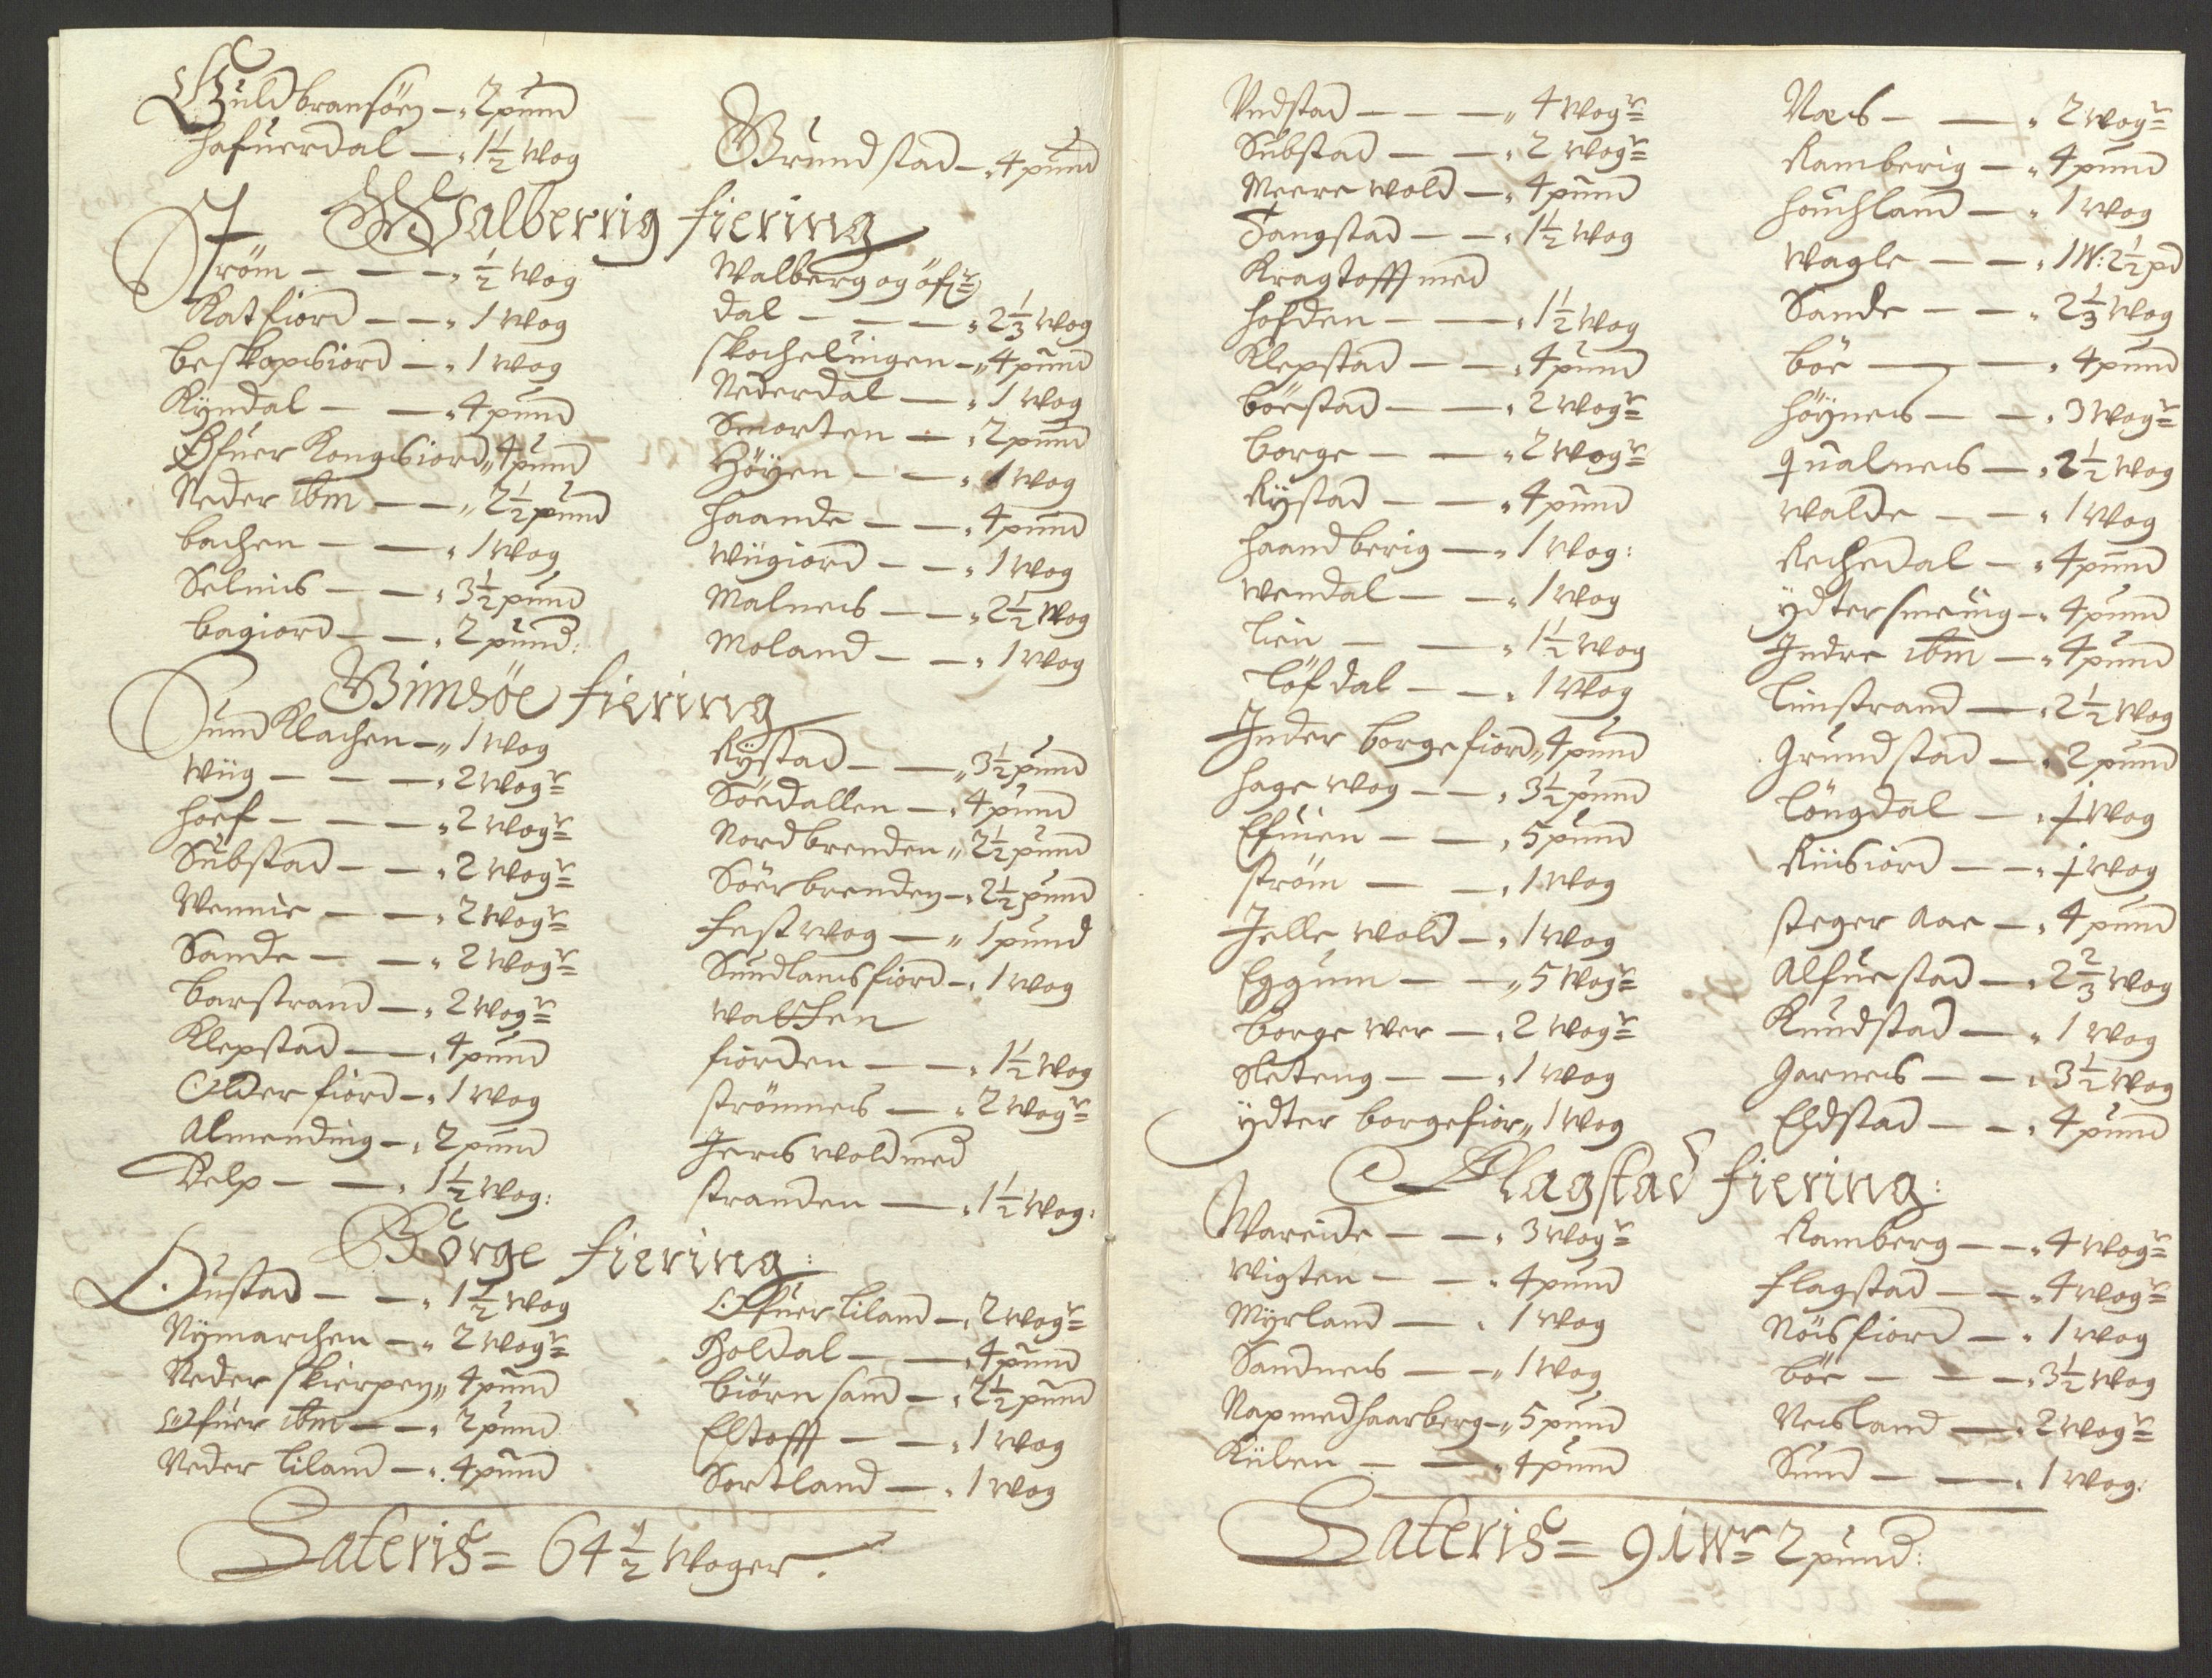 Guldbransöen — 2 pund
Hafuerdal — 1½ Wog
Grundstad — 4 pund
Walberrig fiering
Ström — — — ½ Wog
Katfiord — — 1 Wog
beskopsiord — 1 Wog
Kyndal — — 4 pund
Øfuer Kongsiord 4 pund
Neder ibm — — 2½ pund
bachen — — 1 Wog
Selnis — — 3½ pund
bagiord — — 2 pund:
Walberg og öf(r)
dal — — — 2⅓ Wog
skochelüngen — 4 pund
Nederdal — 1 Wog
Smorten — 2 pund
Höyen — — 1 Wog
Haande — — 4 pund
Wügiord — — 1 Wog
Malnes — — 2½ Wog
Moland — — 1 Wog
Gimsöe fiering
Sund Klachen — 1 Wog
Wiig — — — 2 Wogr
Hoef — — — 2 Wogr
Substad — — 2 Wogr
Wennie — — 2 Wogr
Sande — — 2 Wogr
barstrand — 2 Wogr
Klepstad — 4 pund
Older fiord — 1 Wog
Almending — 2 pund
Kelp — — 1½ Wog:
Rystad — — 3½ pund
Söedallen — 4 pund
Nordbrenden 2½ pund
Söerbrenden — 2½ pund
Festwog — 1 pund
Sundlansfiord — 1 Wog
Watsfen
fiorden — — 1½ Wog
strömnes — 2 Wogr
Jerswold med
stranden — 1½ Wog:
Borge fiering:
Oustad — — 1½ Wog
Nymarchen — 2 Wogr
Neder skierpen 4 pund
Øfuer ibm — 2 pund
Neder liland — 4 pund
Øfuer liland — 2 Wogr
Holdal — — 4 pund
biörnsand — 2½ pund
Eltofft — — 1 Wog
Sortland — 1 Wog
Lateris = 64½ Woger.
Vndstad — — — 4 Wogr
Substad — — 2 Wogr
Meere wold — 4 pund
Tangstad — — 1½ Wog
Kragtofft med
Hofden — — 1½ Wog
Klepstad — — 4 pund
böestad — — 2 Wogr
borge — — 2 Wogr
Rystad — — 4 pund
Haandberig — 1 Wog:
Wendal — — 1 Wog
lien — — 1½ Wog
löfdal — — 1 Wog
Inder borgefiord 4 pund
Hage wog — — 3½ pund
Efuien — — 5 pund
ström — — 1 Wog
Jelle wold — 1 Wog
Eggum — — 5 Wogr
borge wer — 2 Wogr
Sleteng — — 1 Wog
ydter borgefior 1 Wog
Næs — — 2 Wogr
Ramberig — 4 pund
Houchland — 1 Wog
Wagle — — 1 W: 2½ pd
Sande — — 2⅓ Wog
böe — — 4 pund
Höynes — — 3 Wogr
Qualnes — 2½ Wog
Walde — — 1 Wog
Rechedal — 4 pund
ydtersmeüng — 4 pund
Indre ibm — 4 pund
limstrand — 2½ Wog
Grundstad — 2 pund
löngdal — 1 Wog
Riisiord — — 1 Wog
steger Aae — 4 pund
Alfuestad — 2⅔ Wog
Knudstad — 1 Wog
Garnes — — 3½ Wog
Eldstad — — 4 pund
Flagstad fiering:
Wareide — — 3 Wogr
Wigten — — 4 pund
Myrland — 1 Wog
Sandnes — — 1 Wog
Nap med Haarberg — 5 pund
Kiilen — — 4 pund
Ramberg — — 4 Wogr
Flagstad — — 4 Wogr
Nöisfiord — 1 Wog
böe — — — 3½ Wog
Nesland — 2 Wogr
Sund — — 1 Wog:
Lateris = 91 Wr 2 pund: